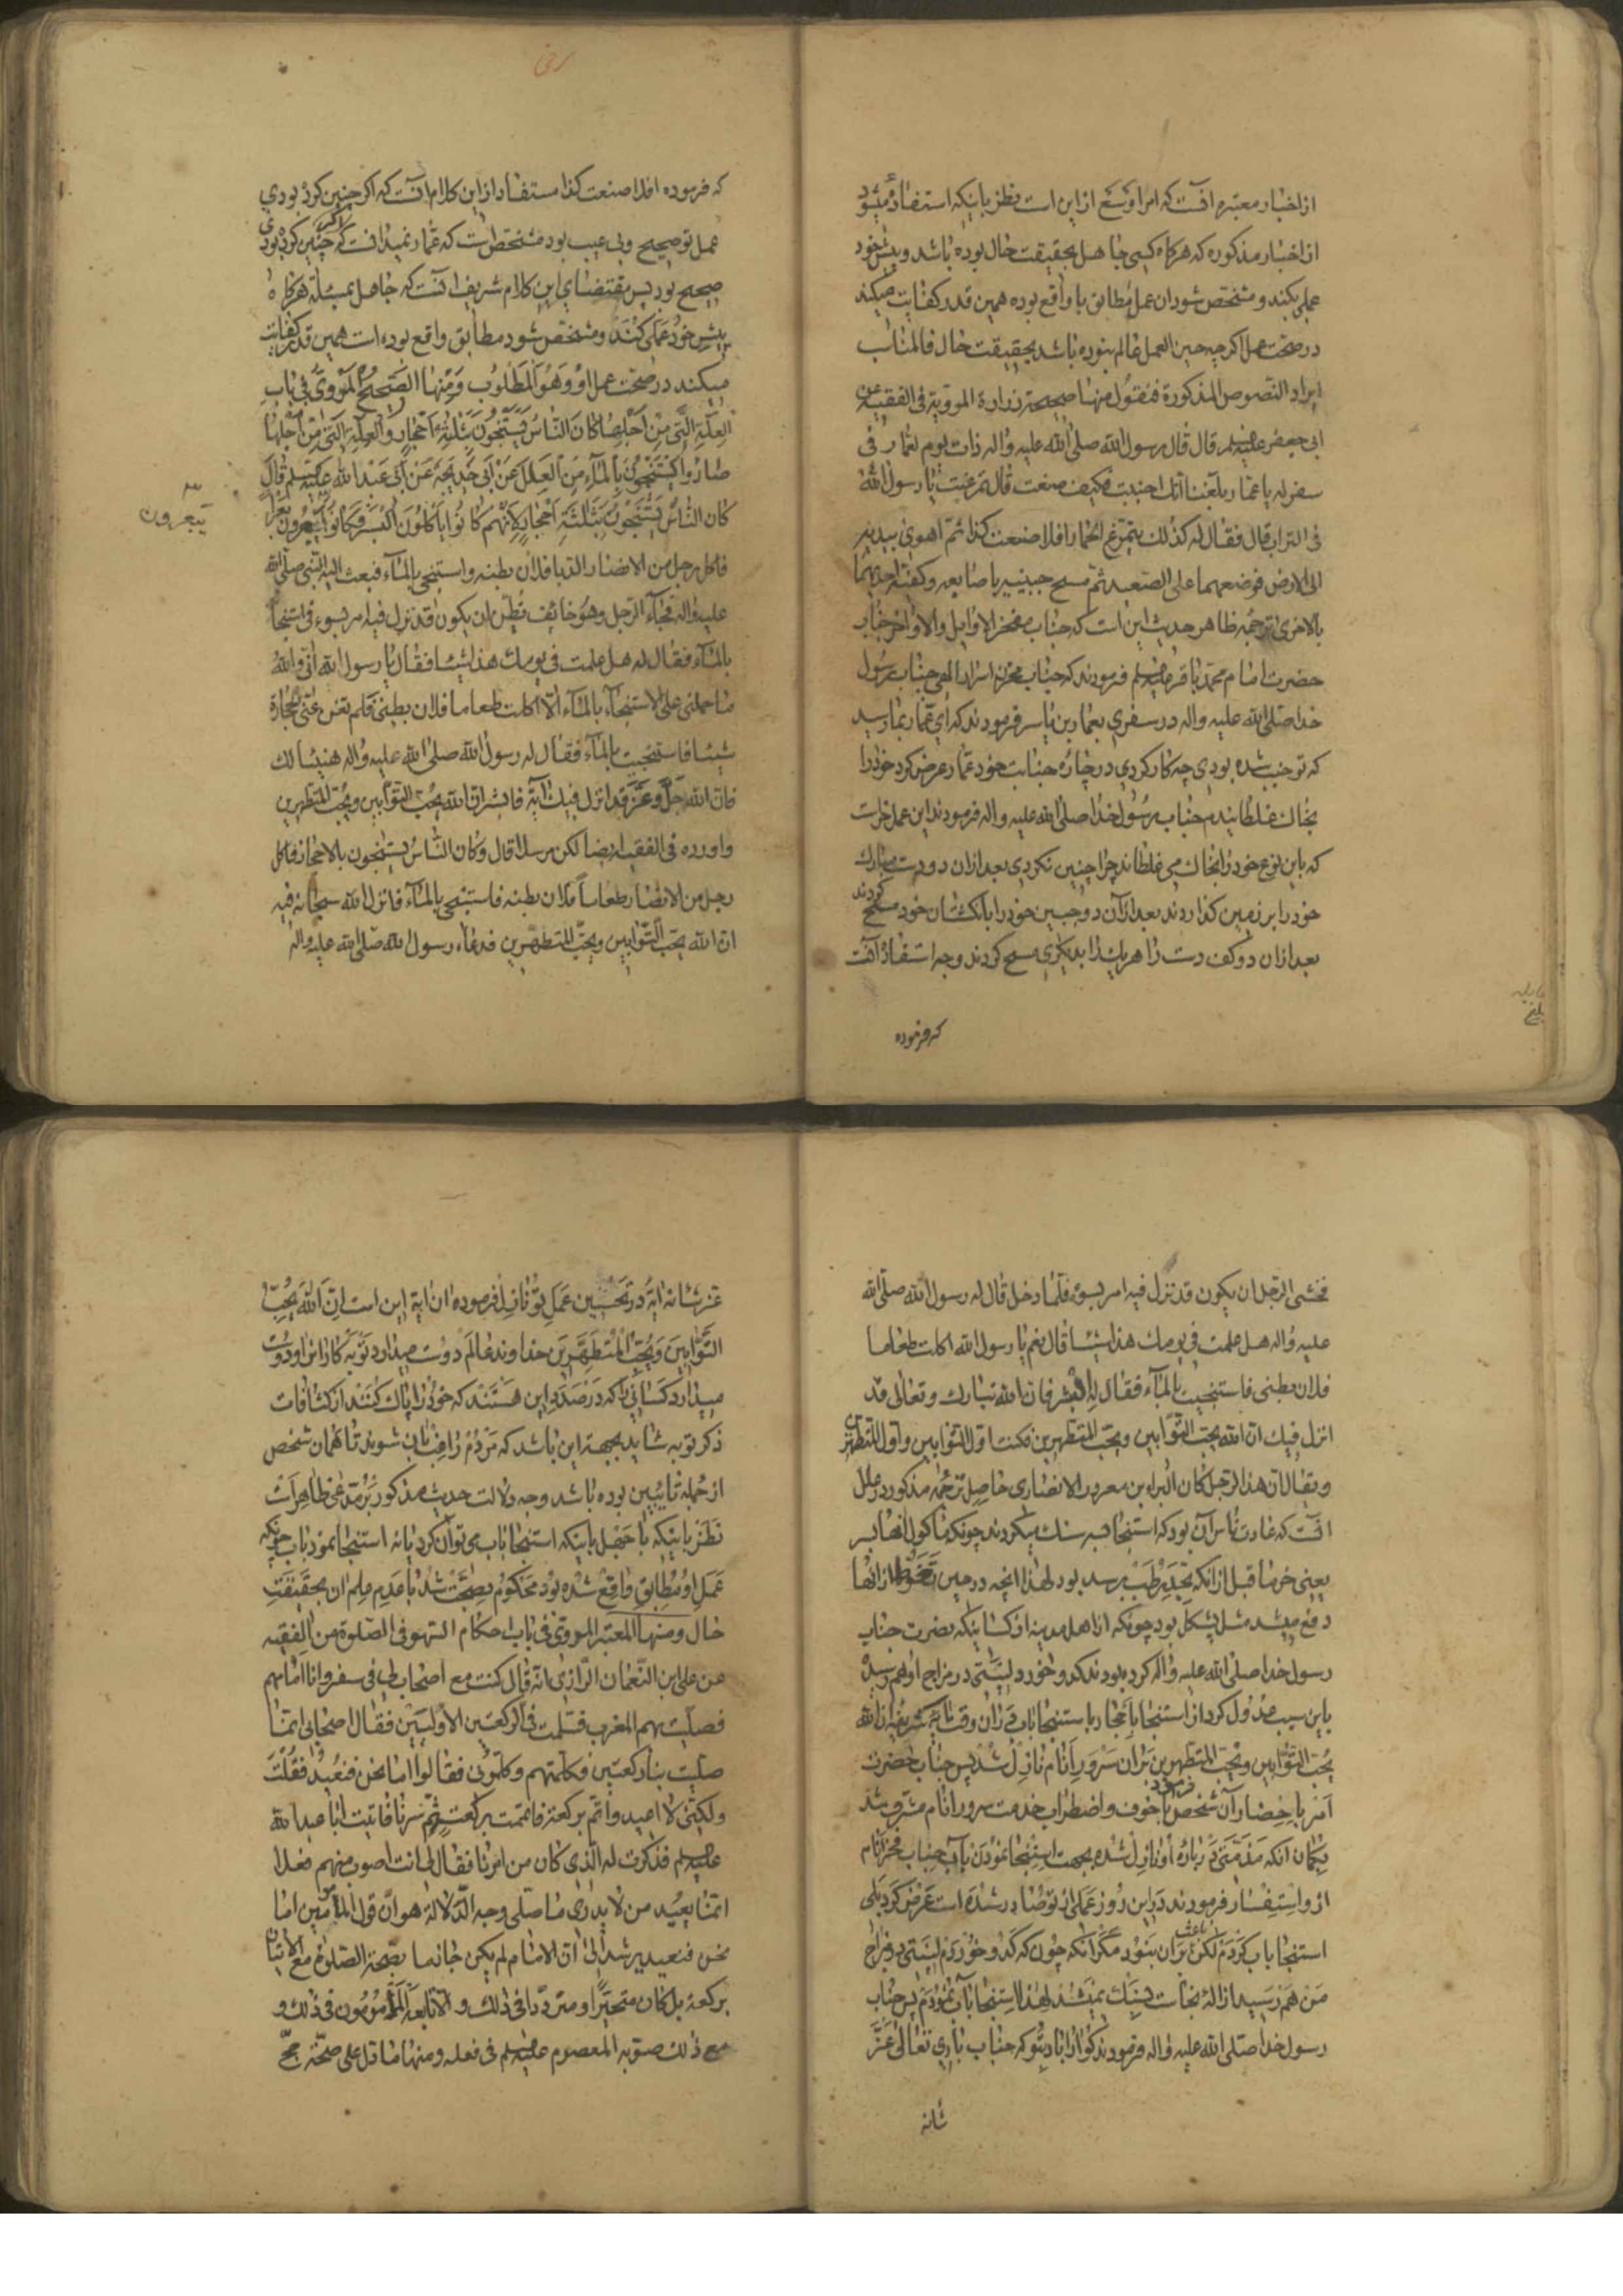 از اخبار معتبره آنست که امر اوسع از این است نظر باینکه استفاده میشود
از اخبار مذکوره که هرکاه کسی جاهل بحقیقت حال بوده باشد و پیش خود
عملی بکند و مشخص شود ان عمل مطابق با واقع بوده همین قدر کفایت میکند
در صحت عمل اکرچه حین العمل عالم نبوده باشد بحقیقت حال فالمناسب
ایراد النصوص المذکورة فنقول منها صحیحة زرارة المرویة فی الفقیه عن
ابی جعفر علیه السلم قال قال رسول الله صلی الله علیه واله ذات یوم لعمار فی
سفر له یا عمار بلغنا انک اجنبت فکیف صنعت قال تمرغت یا رسول الله
فی التراب قال فقال له کذلک یتمرغ الحمار افلا صنعت کذا ثم اهوی بیدیه
الی الارض فوضعهما علی الصعید ثم مسح جبینیه باصابعه وکفیه احدیهما
بالاخری ترجمه ظاهر حدیث این است که جناب مفخر الاوایل والاواخر جناب
حضرت امام محمد باقر علیه السلم فرمودند که جناب مخزن اسرار الهی جناب رسول
خدا صلی الله علیه واله در سفری بعمار بن یاسر فرمودند که ای عمار بما رسید
که تو جنب شده بودی چه کار کردی در چاره جنابت خود عمار عرض کرد خود را
بخاک غلطانیدم جناب رسول خدا صلی الله علیه واله فرمودند این عمل خراست
که باین نوع خود را بخاک می غلطاند چرا چنین نکردی بعد از ان دو دست مبارک
خود را بر زمین کذاردند بعد از آن دو جبین خود را بانکشتان خود مسح کردند
بعد از ان دو کف دست را هر یک را بدیکری مسح کردند وجه استفاده آنست
که فرموده
که فرموده افلا صنعت کذا مستفاد از این کلام آنست که اکر چنین کرده بودی
عمل تو صحیح و بی عیب بود مشخص است که عمار نمیدانست که اکر چنین کرده بودی
صحیح بود پس مقتضای این کلام شریف آنست که جاهل بمسئله هرکاه
پیش خود عملی کند و مشخص شود مطابق واقع بوده است همین قدر کفایت
میکند در صحت عمل او وهو المطلوب ومنها الصحیح المروی فی باب
العلة التی من اجلها کان الناس یستنجون بثلثة احجار والعلة التی من اجلها
صاروا یستنجون بالماء من العلل عن ابی خدیجة عن ابی عبد الله علیه السلم قال
کان الناس یستنجون بثلثة احجار لانهم کانوا یاکلون البسر فکانوا یبعرون بعرا
یبعرون
فاکل رجل من الانصار الدبا فلان بطنه واستنجی بالماء فبعث الیه النبی صلی الله
علیه واله فجاء الرجل وهو خائف یظن ان یکون قد نزل فیه امر بسوء فی استنجا
بالماء فقال له هل عملت فی یومک هذا شیئا فقال یا رسول الله انی والله
ما حملنی علی الاستنجاء بالماء الا اکلت طعاما فلان بطنی فلم تغن عنی الحجارة
شیئا فاستنجیت بالماء فقال له رسول الله صلی الله علیه واله هنیئا لک
فان الله جل وعز قد انزل فیک آیة فابشر ان الله یحب التوابین ویحب المتطهرین
واورده فی الفقیه ایضا لکن مرسلا قال وکان الناس یستنجون بالاحجار فاکل
رجل من الانصار طعاما فلان بطنه فاستنجی بالماء فانزل الله سبحانه فیه
ان الله یحب التوابین ویحب المتطهرین فدعاه رسول الله صلی الله علیه واله
فخشی الرجل ان یکون قد نزل فیه امر بسوء فلما دخل قال له رسول الله صلی الله
علیه واله هل عملت فی یومک هذا شیئا قال نعم یا رسول الله اکلت طعاما
فلان بطنی فاستنجیت بالماء فقال له ابشر فان الله تبارک وتعالی قد
انزل فیک ان الله یحب التوابین ویحب المتطهرین فکنت اول التوابین واول المتطهرین
ویقال ان هذا الرجل کان البراء بن معرور الانصاری حاصل ترجمه مذکور در علل
آنست که عادت ناس آن بود که استنجا بسه سنک میکردند چونکه ماکول انها بسر
یعنی خرما قبل از انکه بحد رطب برسد بود لهذا انچه در حین تغوط از انها
دفع میشد مثل پشکل بود چونکه از اهل مدینه از کسانیکه نصرت جناب
رسول خدا صلی الله علیه واله کرده بودند کدو خورد لینتی در مزاج او بهم رسید
باین سبب عدول کرد از استنجا باحجار باستنجا باب در آن وقت آیه شریفه ان الله
یحب التوابین ویحب المتطهرین بر ان سرور انام نازل شد پس جناب حضرت
امر باحضار آن شخص فرمود با خوف و اضطراب خدمت سرور انام مشرف شد
بکمان انکه مذمتی در باره او نازل شده بجهت استنجا نمودن بآب جناب فخر انام
از او استفسار فرمودند در این روز عملی از تو صادر شده است عرض کرد بلی
استنجا باب کردم لکن باعث بر آن نبود مکر انکه چون که کدو خوردم لینتی در مزاج
من بهم رسید ازاله نجاست بسنک نمیشد لهذا استنجا بآب نمودم پس جناب
رسول خدا صلی الله علیه واله فرمودند کوارا باد بتو که جناب باری تعالی عز
شانه
عز شانه آیه در تحسین عمل تو نازل فرموده ان آیه این است ان الله یحب
التوابین ویحب المتطهرین خداوند عالم دوست میدارد توبه کاران را و دوست
میدارد کسانی را که در صدد این هستند که خود را پاک کنند از کثافات
ذکر توبه شاید بجهة این باشد که مردم راغب بان شوند تا همان شخص
از جمله تایبین بوده باشد وجه دلالت حدیث مذکور بر مدعی ظاهر است
نظر باینکه با جهل باینکه استنجا باب می توان کرد یا نه استنجا نمود باب چونکه
عمل او مطابق واقع شده بود محکوم بصحت شد با عدم علم ان بحقیقت
حال ومنها المعتبر المروی فی باب احکام السهو فی الصلوة من الفقیه
عن علی بن النعمان الرازی انه قال کنت مع اصحاب لی فی سفر وانا امامهم
فصلیت بهم المغرب فسلمت فی الرکعتین الاولیین فقال اصحابی انما
صلیت بنا رکعتین فکلمتهم وکلمونی فقالوا اما نحن فنعید فقلت
ولکنی لا اعید واتم برکعة فاتممت برکعة ثم سرنا فاتیت ابا عبد الله
علیه السلم فذکرت له الذی کان من امرنا فقال لی انت اصوب منهم فعلا
انما یعید من لا یدری ما صلی وجه الدلالة هو ان قول المأمومین اما
نحن فنعید یرشد الی ان الامام لم یکن جازما بصحة الصلوة مع الاتیان
برکعة بل کان متحیرا او مترددا فی ذلک و الا تابعه المأمومون فی ذلک و
مع ذلک صوبه المعصوم علیه السلم فی فعله ومنها ما دل علی صحة حج